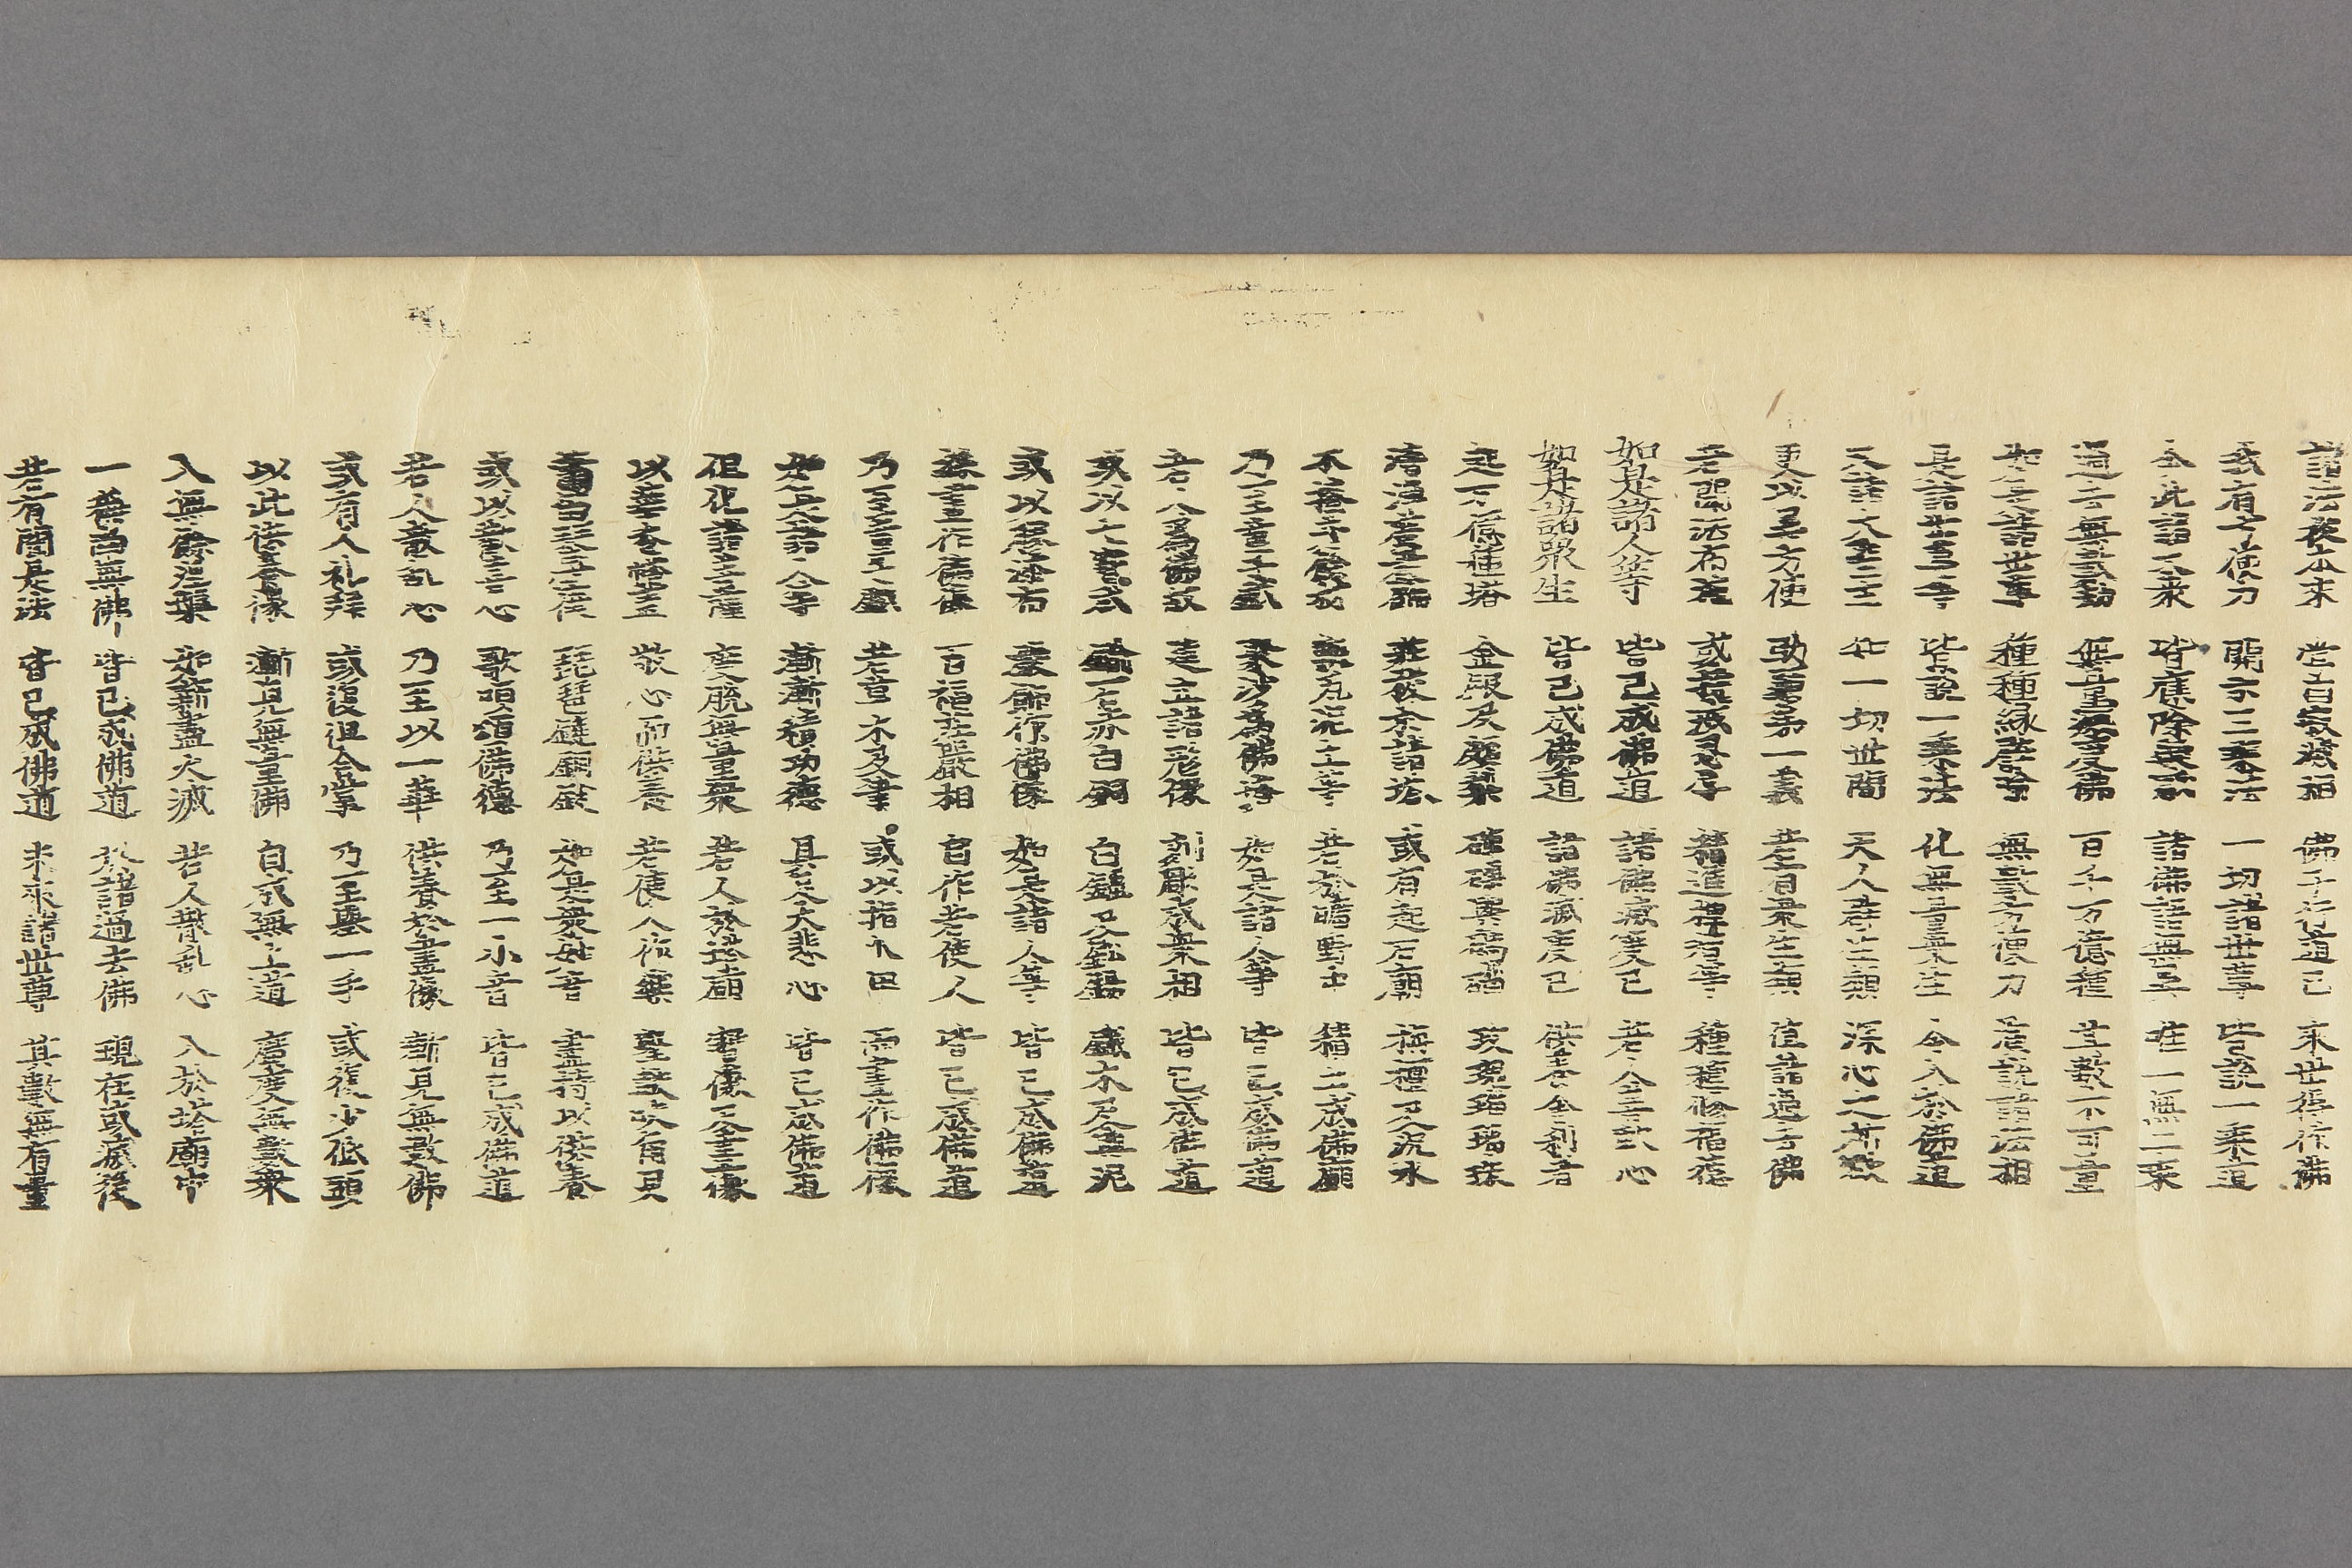 諸法從本來 常自寂滅相 佛子行道已 來世得作佛
我有方便力 開示三乘法 一切諸世尊 皆說一乘道
今此諸大衆 皆應除疑惑 諸佛語無異 唯一無二乘
過去無數劫 無量滅度佛 百千万億種 其數不可量
如是諸世尊 種種緣譬喻 無數方便力 演說諸法相
是諸世尊等 皆說一乘法 化無量衆生 令入於佛道
又諸大聖主 知一切世間 天人群生類 深心之所欲
更以異方便 助顯第一義 若有衆生類 值諸過去佛
若聞法布施 或持戒忍辱 精進禪智等 種種修福德
如是諸人等 皆已成佛道 諸佛滅度已 若人善軟心
如是諸衆生 皆已成佛道 諸佛滅度已 供養舍利者
起万億種塔 金銀及頗梨 硨磲與碼碯 玫瑰瑠璃珠
清淨廣嚴飾 莊校於諸塔 或有起石廟 栴檀及沉水
木櫁并餘材 甎瓦泥土等 若於曠野中 積土成佛廟
乃至童子戲 聚沙爲佛塔 如是諸人等 皆已成佛道
若人爲佛故 建立諸形像 刻彫成衆相 皆已成佛道
或以七寶成 鍮石赤白銅 白鑞及鉛錫 鐵木及與泥
或以膠漆布 嚴飾作佛像 如是諸人等 皆已成佛道
綵畫作佛像 百福莊嚴相 自作若使人 皆已成佛道
乃至童子戲 若草木及筆 或以指爪甲 而畫作佛像
如是諸人等 漸漸積功德 具足大悲心 皆已成佛道
但化諸菩薩 度脫無量衆 若人於塔廟 寶像及畫像
以華香幡蓋 敬心而供養 若使人作樂 擊鼓吹角貝
簫笛琴箜篌 琵琶鐃銅鈸 如是衆妙音 盡持以供養
或以歡喜心 歌唄頌佛德 乃至一小音 皆已成佛道
若人散乱心 乃至以一華 供養於畫像 漸見無數佛
或有人礼拜 或復但合掌 乃至擧一手 或復少低頭
以此供養像 漸見無量佛 自成無上道 廣度無數衆
入無餘涅槃 如薪盡火滅 若人散乱心 入於塔廟中
一稱南無佛 皆已成佛道 於諸過去佛 現在或滅後
若有聞是法 皆已成佛道 未來諸世尊 其數無有量